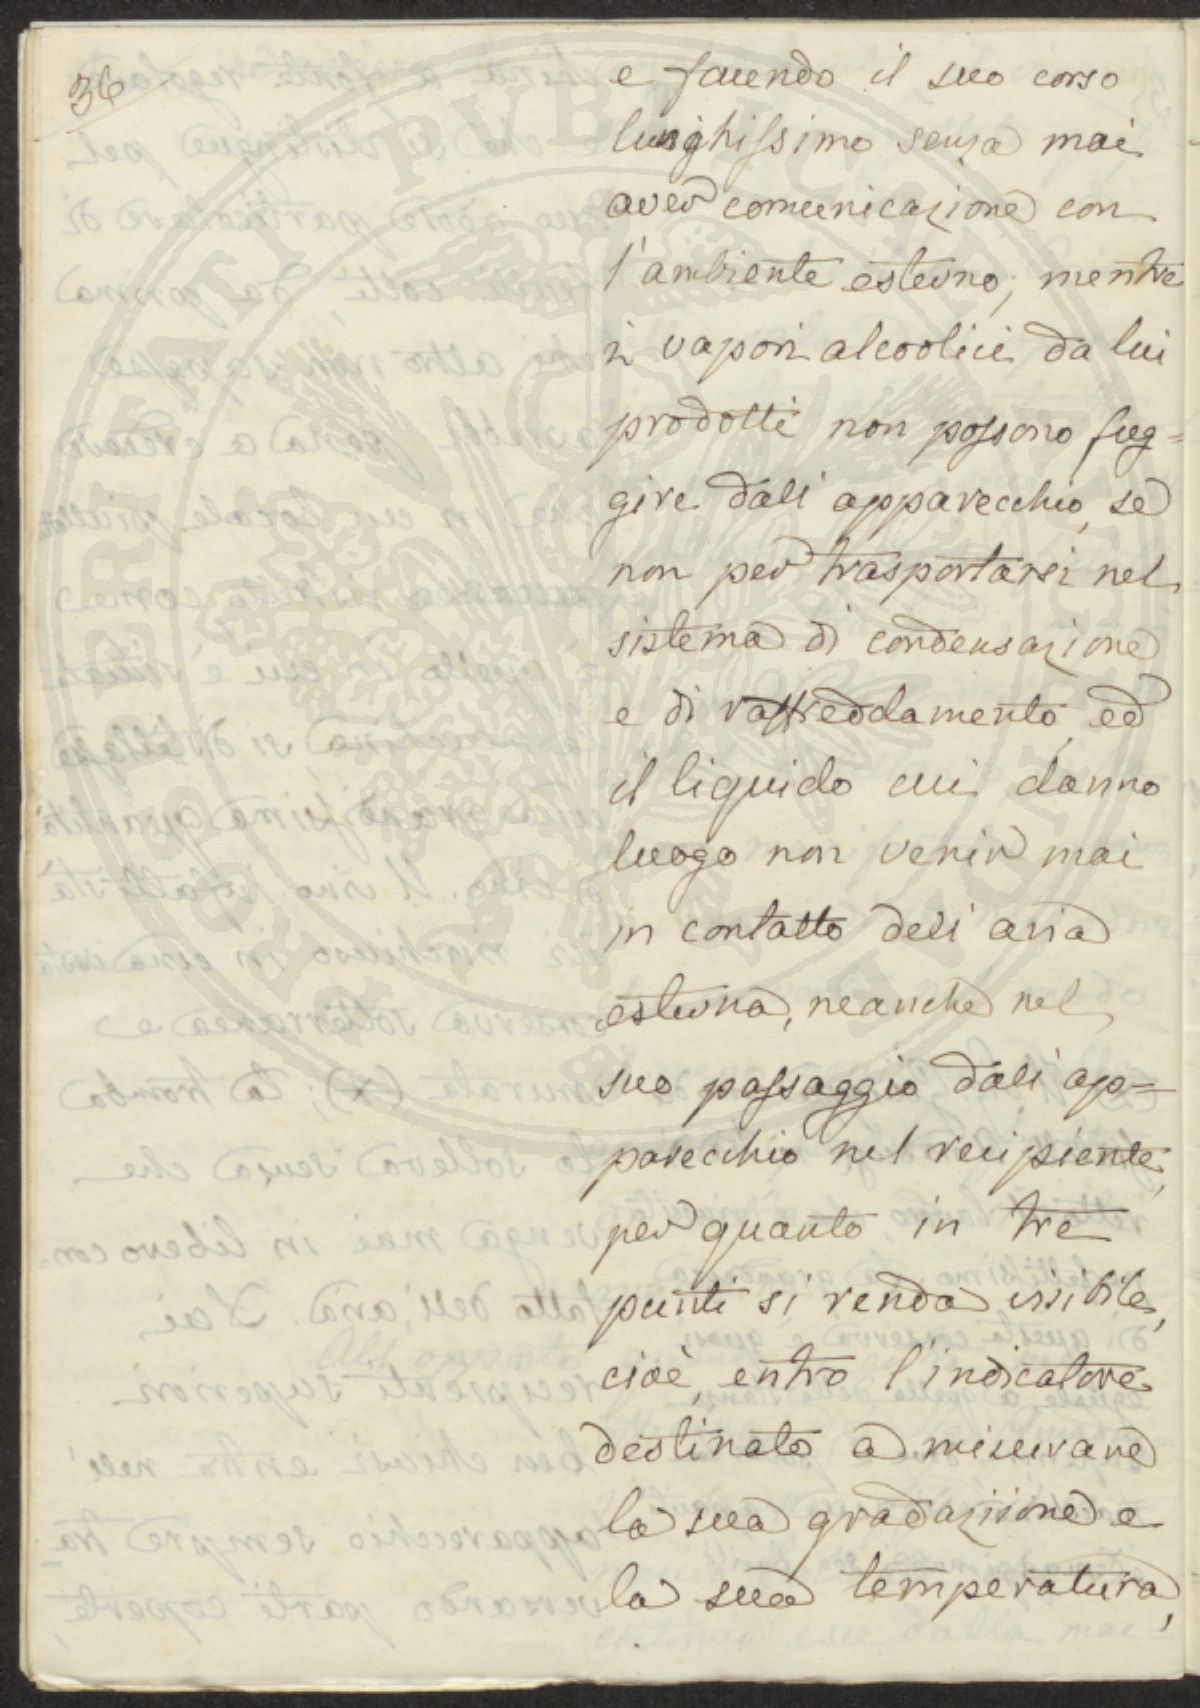 36
e facendo il suo corso
lunghissimo senza mai
aver comunicazione con
l'ambiente esterno, mentre
i vapori alcoolici da lui
prodotti non possono fug=
gire dall'apparecchio, se
non per trasportarsi nel
sistema di condensazione
e di raffreddamento, ed
il liquido cui danno
luogo non venir mai
in contatto dell'aria
esterna, neanche nel
suo passaggio dall'ap=
parecchio nel recipiente,
per quanto in tre
punti si renda visibile,
cioè, entro l'indicatore
destinato a misurare
la sua gradazione e
la sua temperatura,